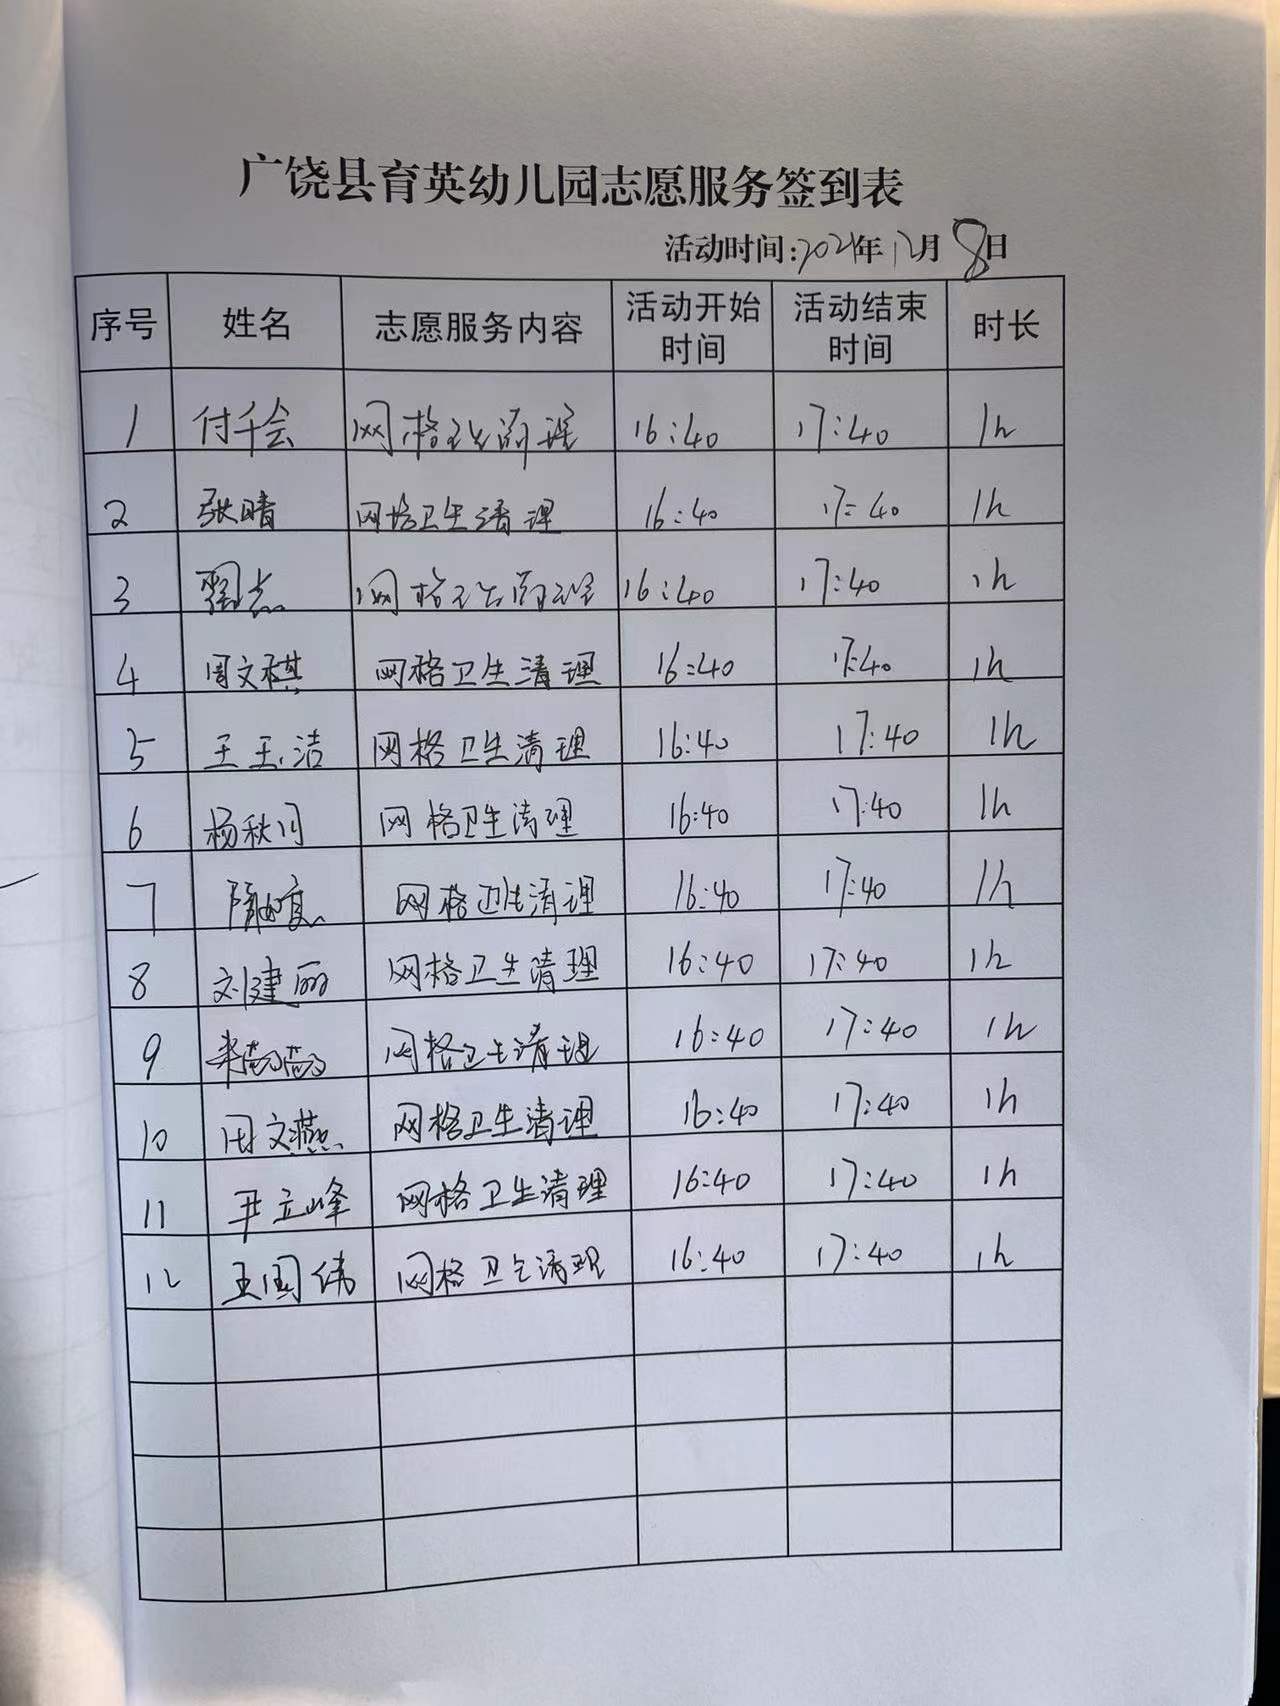 广饶县育英幼儿园志愿服务签到表
活动时间:2021年12月8日
序号 姓名 志愿服务内容 活动开始时间 活动结束时间 时长
1 付千会 网格卫生清理 16:40 17:40 1h
2 张晴 网格卫生清理 16:40 17:40 1h
3 网格卫生清理 16:40 17:40 1h
4 周文棋 网格卫生清理 16:40 17:40 1h
5 王玉洁 网格卫生清理 16:40 17:40 1h
6 杨秋月 网格卫生清理 16:40 17:40 1h
7 网格卫生清理 16:40 17:40 1h
8 刘建丽 网格卫生清理 16:40 17:40 1h
9 网格卫生清理 16:40 17:40 1h
10 周文燕 网格卫生清理 16:40 17:40 1h
11 尹立峰 网格卫生清理 16:40 17:40 1h
12 王国伟 网格卫生清理 16:40 17:40 1h